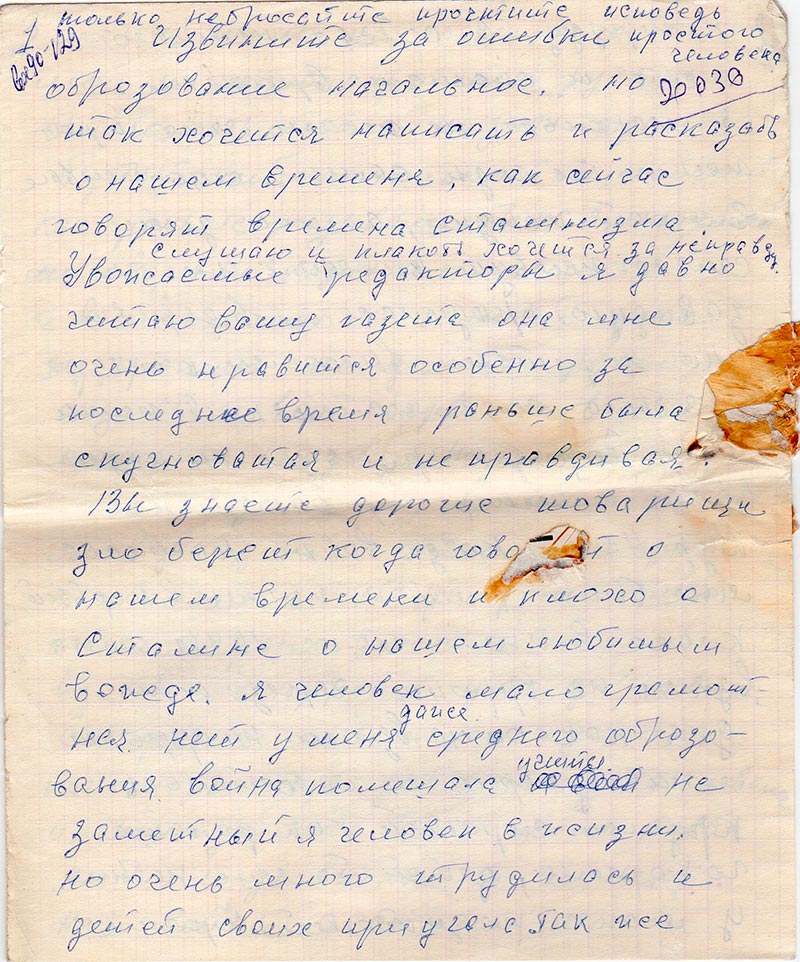 1 только небросайте прочтите исповедь
Извините за ошибки простого
человека
вх90-129
оброзование начальное, но
20030
так хочится написать и расказать
о нашем временя, как сейчас
говорят времена сталинизма.
слушаю и плакать хочется за неправду.
Уважаемые редакторы я давно
читаю вашу газета она мне
очень нравится особенно за
последнее время раньше была
скучноватая и не правдивая.
Вы знаете дорогие товарищи
зло берет когда гово т о
нашем времени и плохо о
Сталине о нашем любимым
вожде. я человек мало грамот-
ная нет у меня даже среднего оброзо-
вания война помешала учится не
заметный я человек в жизни,
но очень много трудилась и
детей своих приучала так же